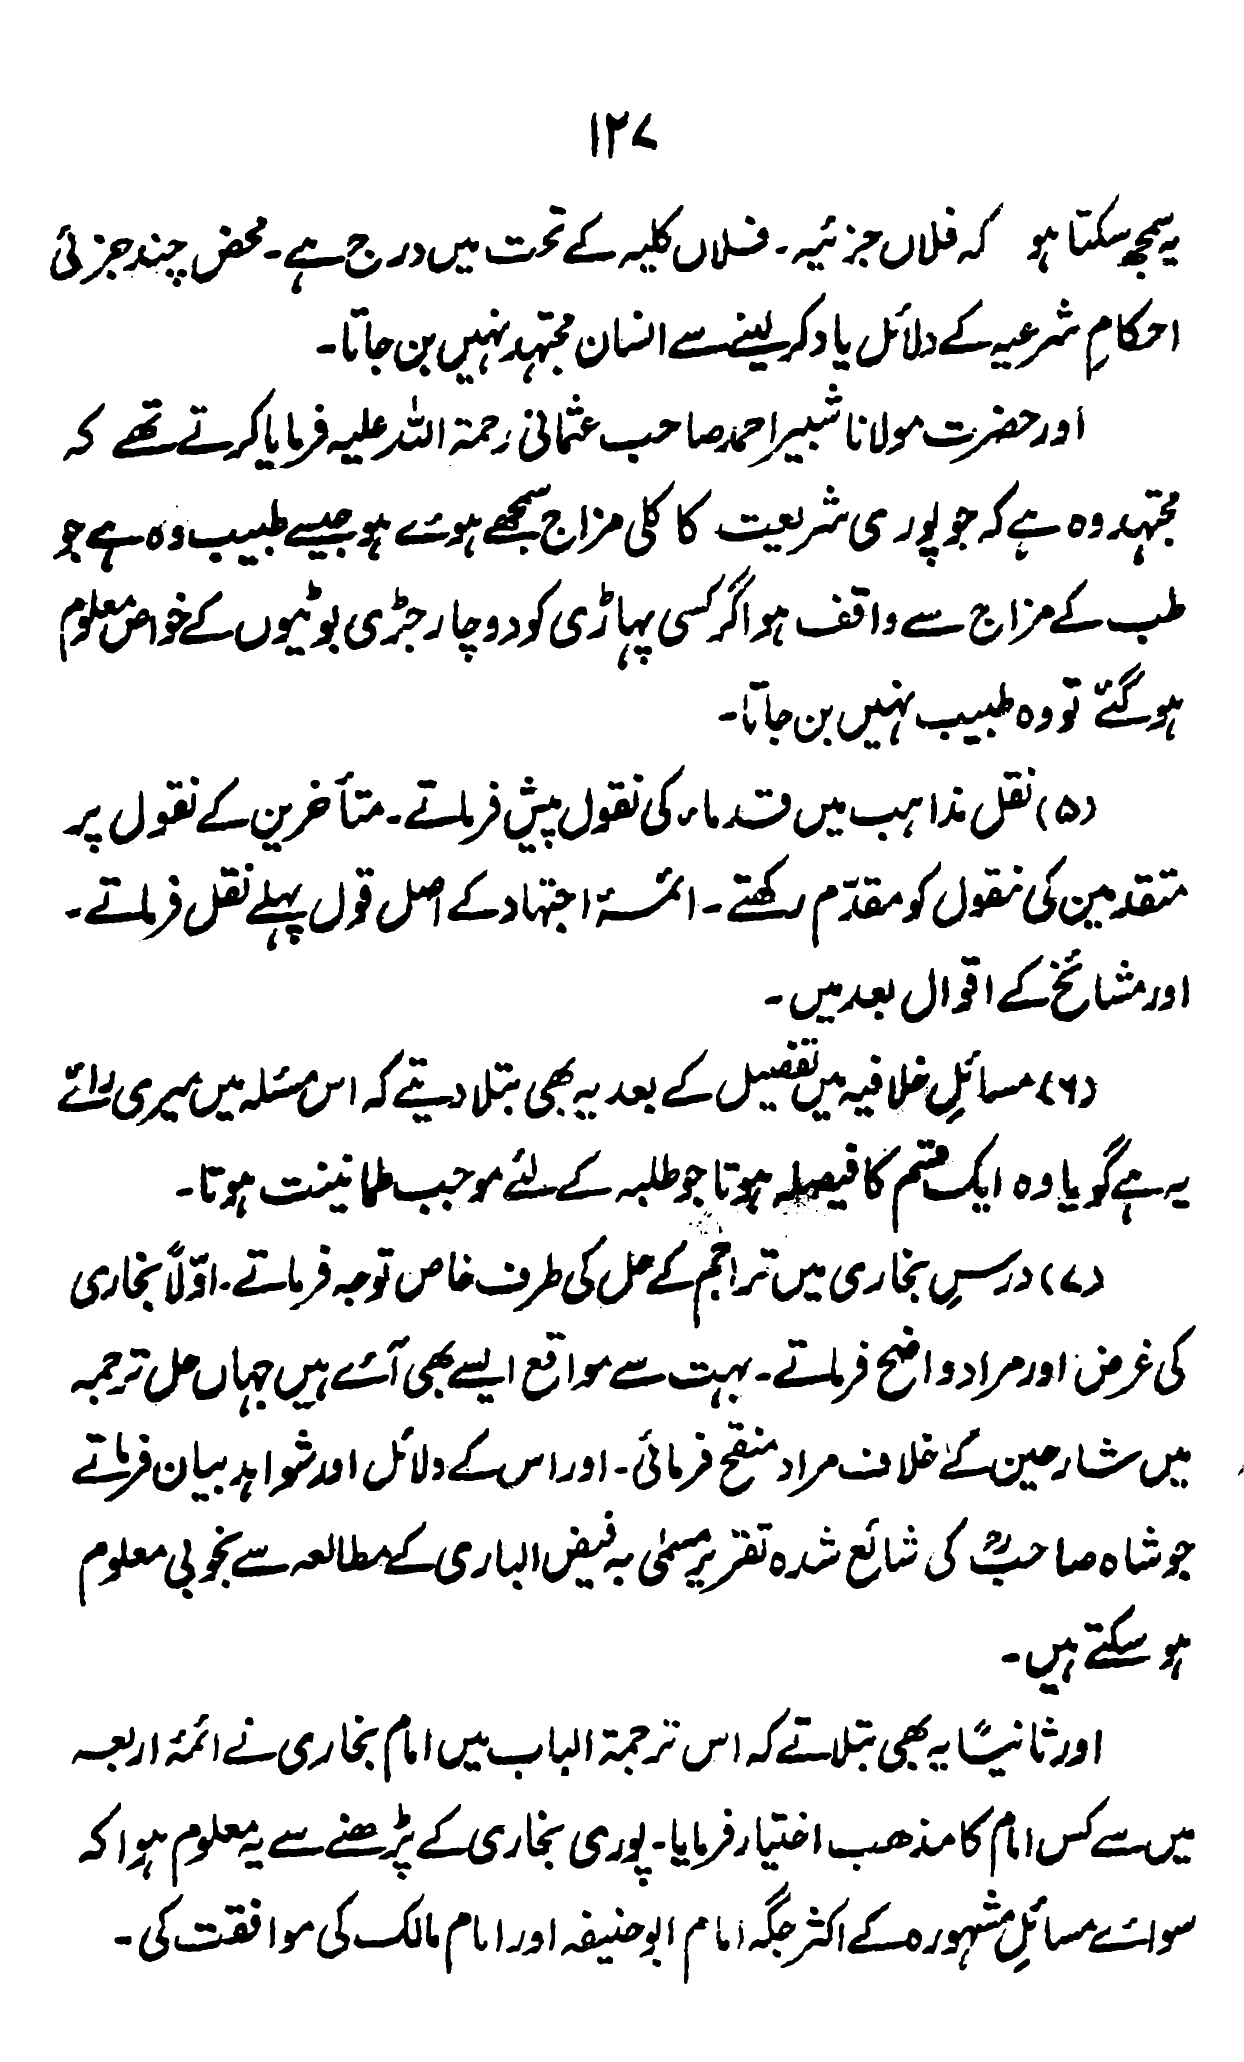 ۱۲۷
یہ سمجھ سکتا ہو کہ فلاں جزئیہ۔ فلاں کلیہ کے تحت میں درج ہے۔ محض چند جزئی
احکامِ شرعیہ کے دلائل یاد کر لینے سے انسان مجتہد نہیں بن جاتا۔
اور حضرت مولانا شبیر احمد صاحب عثمانی رحمۃ اللہ علیہ فرمایا کرتے تھے کہ
مجتہد وہ ہے کہ جو پوری شریعت کا کلی مزاج سمجھے ہوئے ہو جیسے طبیب وہ ہے جو
طب کے مزاج سے واقف ہو اگر کسی پہاڑی کو دو چار جڑی بوٹیوں کے خواص معلوم
ہو گئے تو وہ طبیب نہیں بن جاتا۔
(۵) نقل مذاہب میں قدماء کی نقول پیش فرماتے۔ متأخرین کے نقول پر
متقدمین کی نقول کو مقدّم رکھتے۔ ائمۂ اجتہاد کے اصل قول پہلے نقل فرماتے۔
اور مشائخ کے اقوال بعد میں۔
(۶) مسائلِ خلافیہ میں تفصیل کے بعد یہ بھی بتلا دیتے کہ اس مسئلہ میں میری رائے
یہ ہے گویا وہ ایک قسم کا فیصلہ ہوتا جو طلبہ کے لئے موجب طمانینت ہوتا۔
(۷) درسِ بخاری میں تراجم کے حل کی طرف خاص توجہ فرماتے۔ اوّلاً بخاری
کی غرض اور مراد واضح فرماتے۔ بہت سے مواقع ایسے بھی آئے ہیں جہاں حل ترجمہ
میں شارحین کے خلاف مراد منقح فرمائی۔ اور اس کے دلائل اور شواہد بیان فرماتے
جو شاہ صاحبؒ کی شائع شدہ تقریر مسمّٰی بہ فیض الباری کے مطالعہ سے بخوبی معلوم
ہو سکتے ہیں۔
اور ثانیًا یہ بھی بتلاتے کہ اس ترجمۃ الباب میں امام بخاری نے ائمۂ اربعہ
میں سے کس امام کا مذھب اختیار فرمایا۔ پوری بخاری کے پڑھنے سے یہ معلوم ہوا کہ
سوائے مسائلِ مشہورہ کے اکثر جگہ امام ابوحنیفہ اور امام مالک کی موافقت کی۔